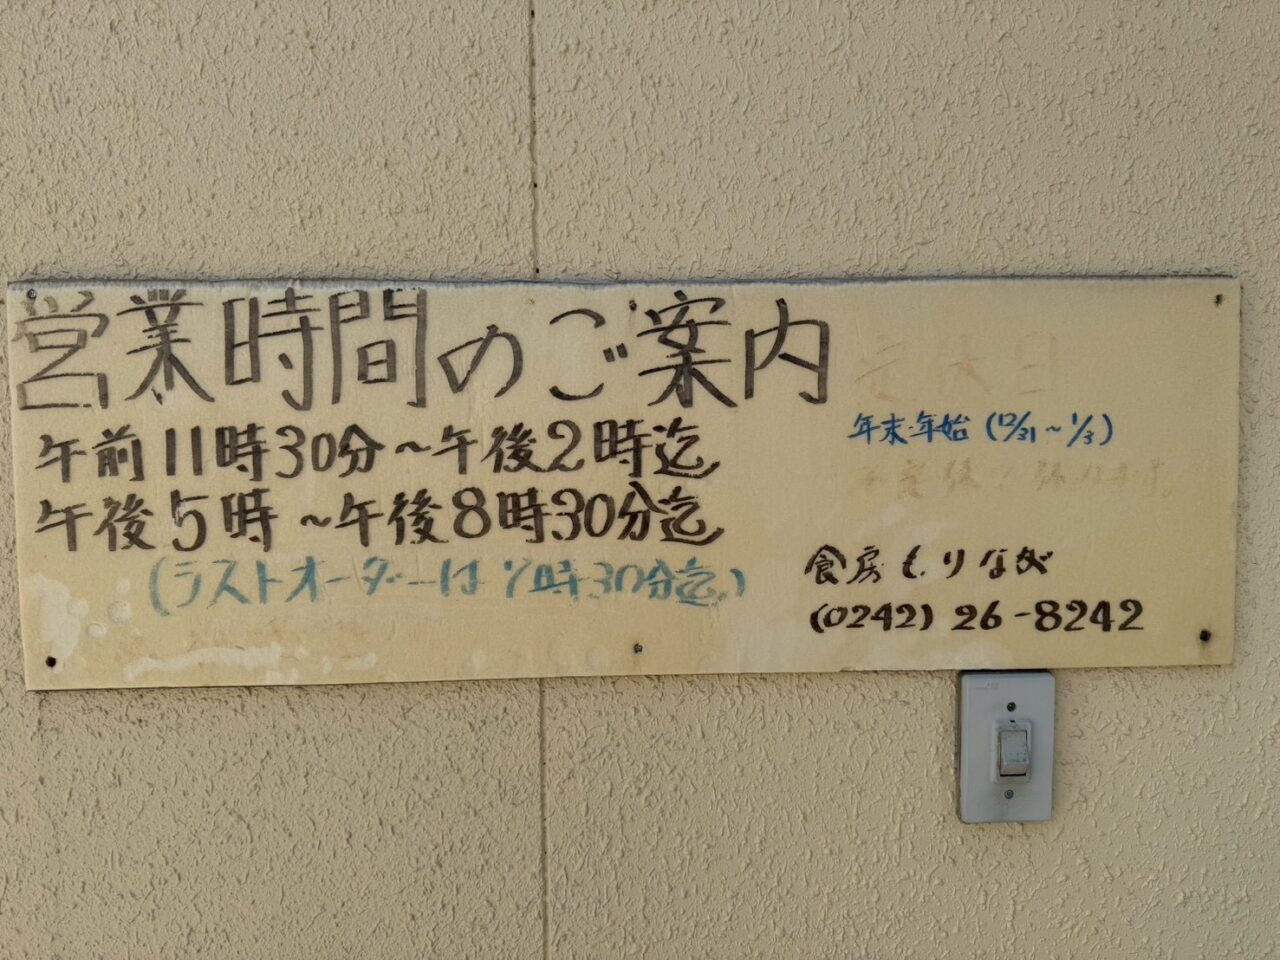 営業時間のご案内
午前11時30分～午後2時迄
午後5時～午後8時30分迄
(ラストオーダーは7時30分迄)
定休日
年末年始(12/31～1/3)
食房もりなが
(0242)26-8242